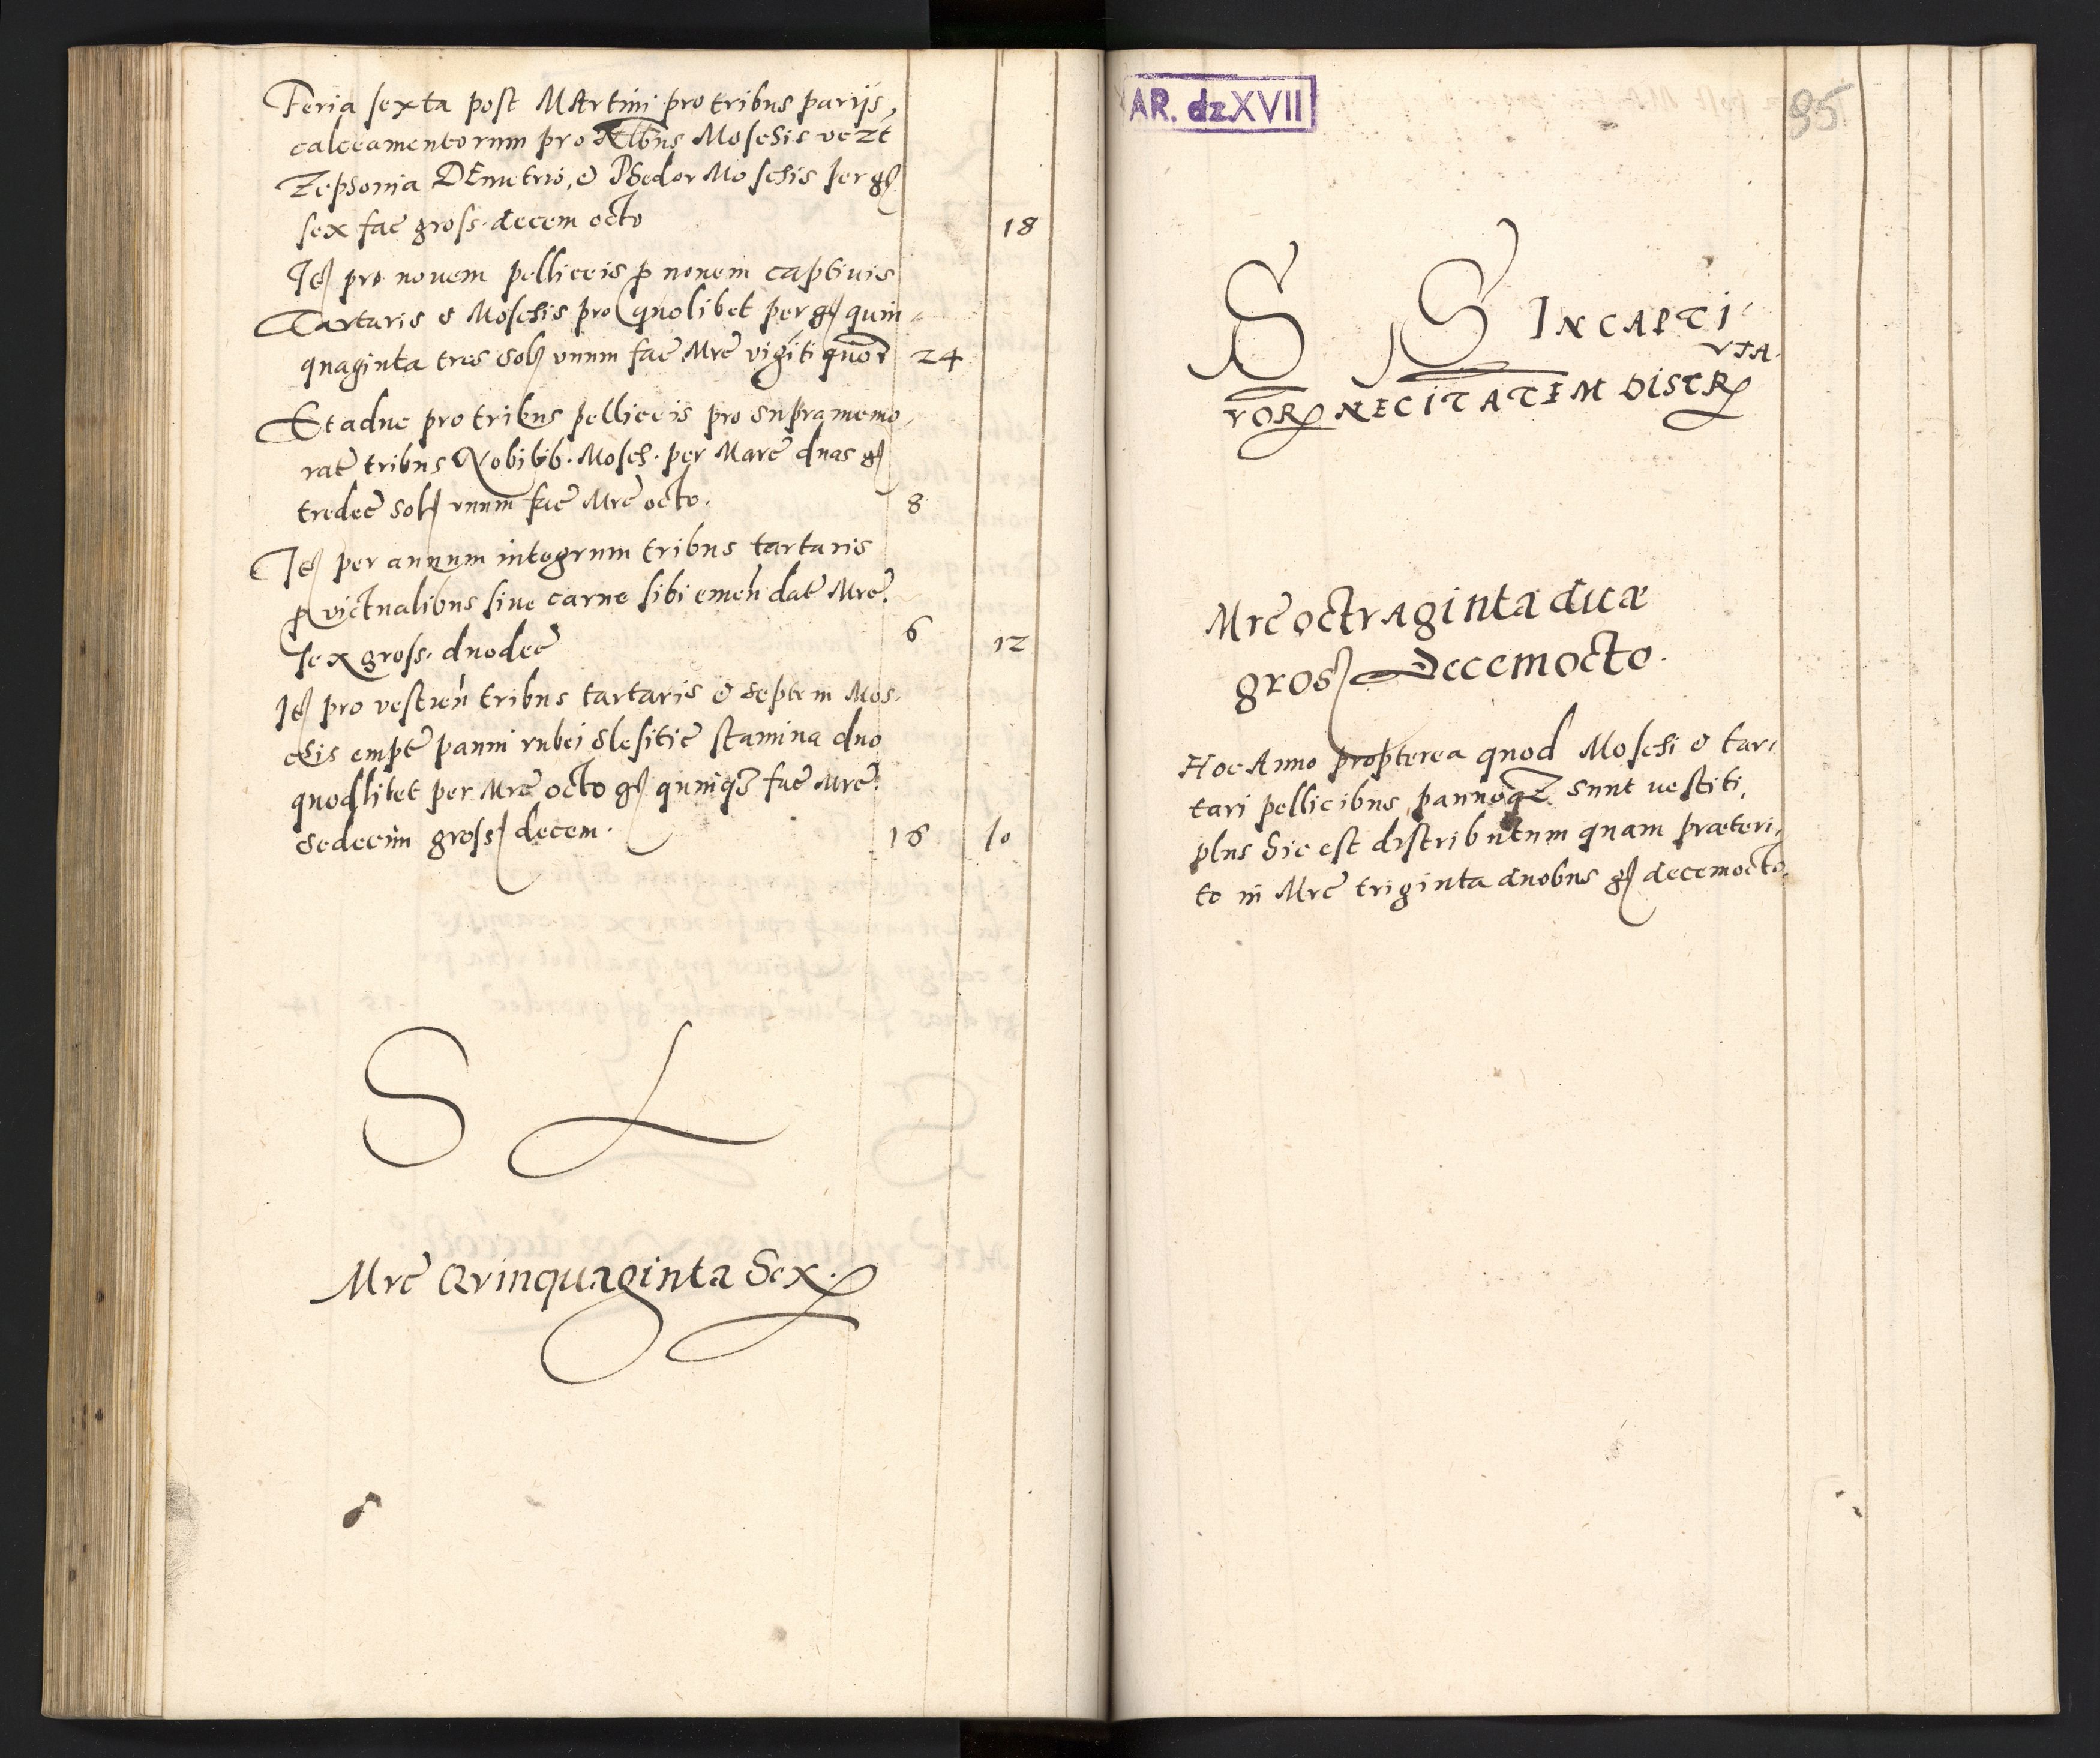 Feria sexta post Martini pro tribus parijs
calceamentorum pro Nlbus Moschis vezt
Zepsonia Demetrio, & Phedor Moschis per gß
sex fac̃ gross. decem octo 18
Itẽ pro novem pelliceis p novem captivis
Tartaris & Moschis pro quolibet per gß quin-
quaginta tres solß vnum fac̃ Mrc̃ vigiti quor 24
Et aduc pro tribus pelliceis pro supramemo-
rat̃ tribus Nobilib. Mosch. per Marc̃ duas gß
tredec̃ solß vnum fac̃ Mrc̃ octo. 8
Itẽ per annum integrum tribus tartaris
p victualibus siue carne sibi emen̄ dat̃ Mrc̃
sex gross. duodec̃ 6 12
Itẽ pro vestien̄ tribus tartaris & septem Mos-
chis empt̃ panni rubei slesitic̃ stamina duo
quodlibet per Mrc̃ octo gß quinqz fac̃ Mrc̃
sedecim grossß decem. 16 10
S L
Mrc̃ Qvinquaginta Sex.
AR. dzXVII
95
S S IN CAPTI-
VORꝝ NECITATEM DISTRꝝ
VTA.
Mrc̃ octvaginta duæ
grosß Decemocto.
Hoc Anno propterea quod Moschi & tar-
tari pellicibus, pannoqz sunt uestiti,
plus hic est distributum quam præteri-
to in Mrc̃ triginta duobus gß decemocto.